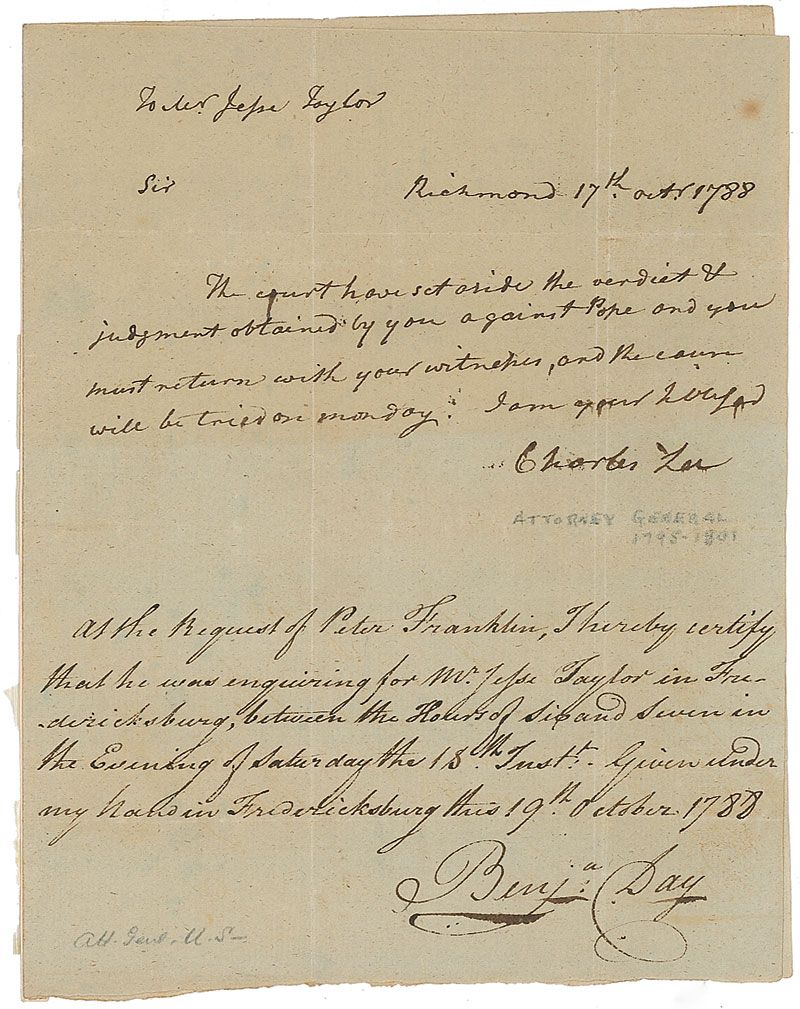 To Mr. Jesse Taylor
Sir
Richmond 17th. octr. 1788
The court have set aside the verdict &
judgment obtained by you against Pope and you
must return with your witnesses, and the cause
will be tried on monday. I am your
Charles Lee
ATTORNEY GENERAL
1795-1801
At the Request of Peter Franklin, I hereby certify
that he was enquiring for Mr. Jesse Taylor in Fre-
-dericksburg, between the Hours of Six and Seven in
the Evening of Saturday the 18th. Inst. Given under
my hand in Fredericksburg this 19th. October 1788
Benja. Day
Att. Genl. U.S.